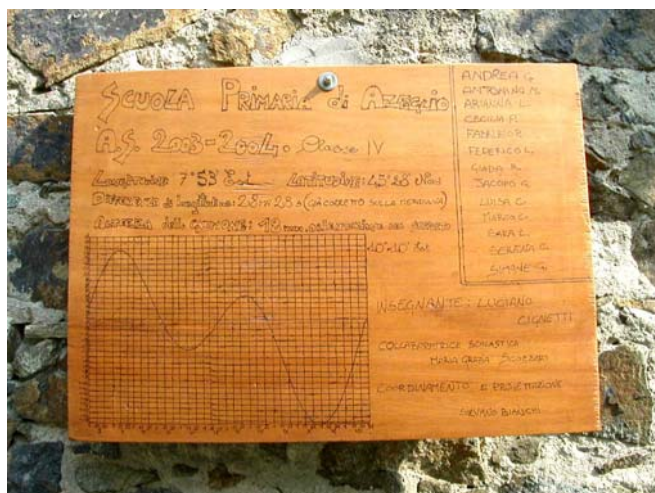 SCUOLA PRIMARIA di AZEGLIO
A.S. 2003-2004. Classe IV
LONGITUDINE: 7°53' Est LATITUDINE: 45°28' Nord
DIFFERENZA di longitudine: 28m 28s (già corretto sulla meridiana)
ALTEZZA dello GNOMONE: 12
10°10' Est
ANDREA G.
ANTONINO M.
ARIANNA L.
CECILIA P.
FABRIZIO P.
FEDERICO L.
GIULIA R.
JACOPO G.
LUISA C.
MARCO C.
SARA L.
SERENA C.
SIMONE G.
INSEGNANTE: LUCIANO
CIGNETTI
COLLABORATRICE SCOLASTICA
MARIA GRAZIA
COORDINAMENTO e PROGETTAZIONE
SILVANO BIANCHI